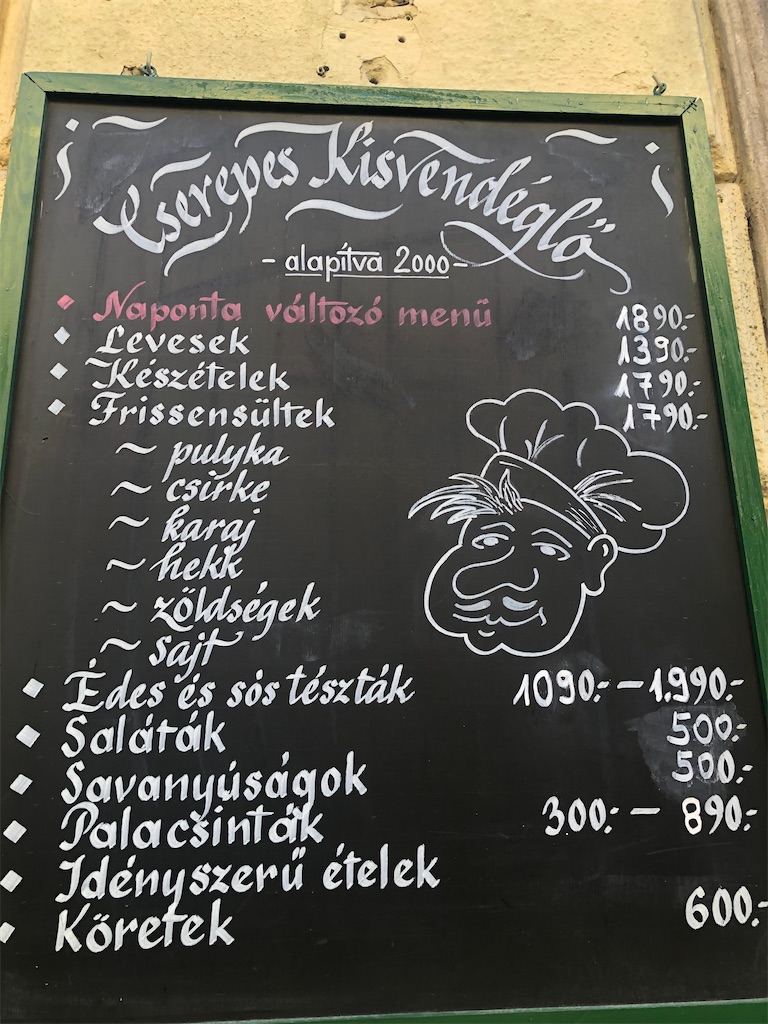 Cserepes Kisvendéglő
- alapítva 2000 -
Naponta változó menü 1890.-
Levesek 1390.-
Készételek 1790.-
Frissensültek 1790.-
~ pulyka
~ csirke
~ karaj
~ hekk
~ zöldségek
~ sajt
Édes és sós tészták 1090.- – 1.990.-
Saláták 500.-
Savanyúságok 500.-
Palacsinták 300.- – 890.-
Idényszerű ételek
Köretek 600.-